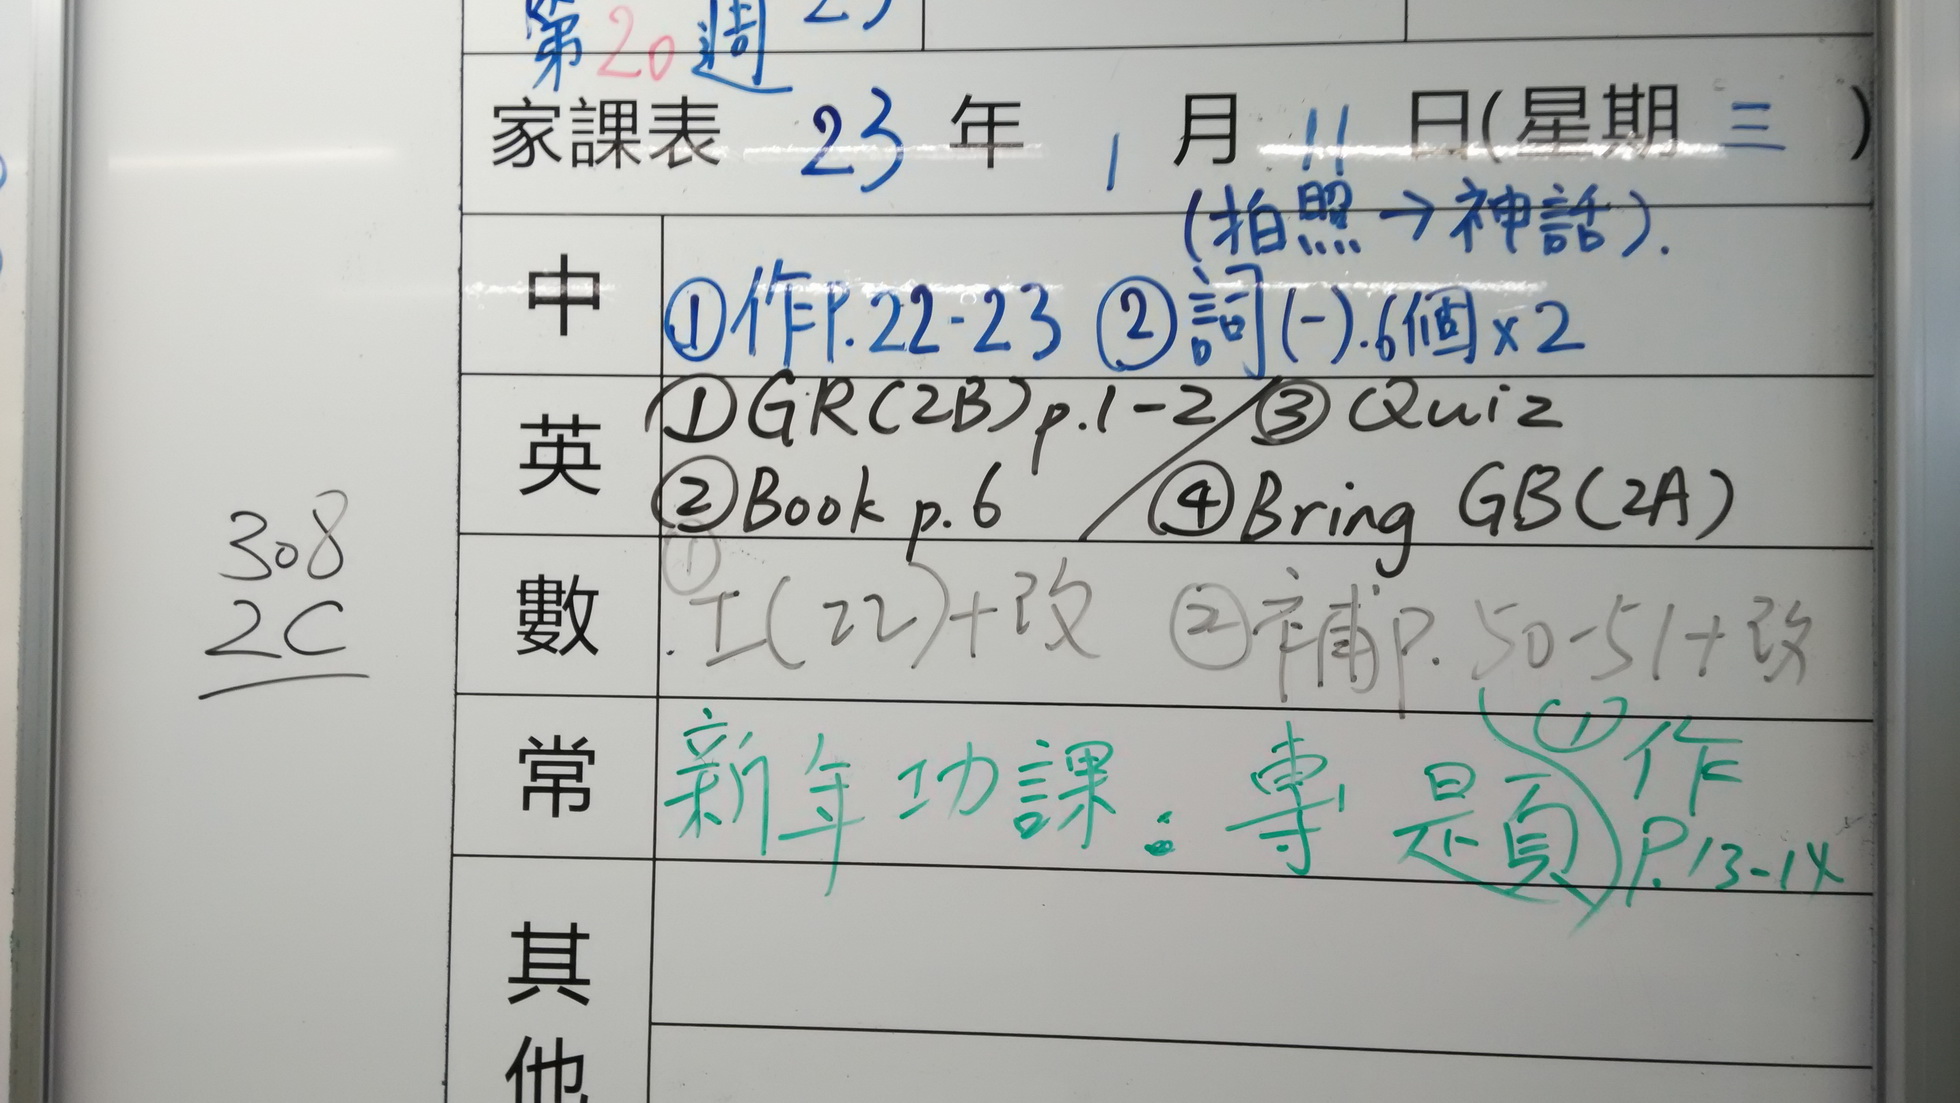 第20週
家課表 23 年 1 月 11 日(星期三)
(拍照→神話).
中 ①作P.22-23 ②詞(一).6個x2
英 ①GR(2B)p.1-2 / ③Quiz
②Book p.6 / ④Bring GB(2A)
數 ①工(22)+改 ②補P.50-51+改
常 新年功課:專題 作
P.13-14
其他
308
2C